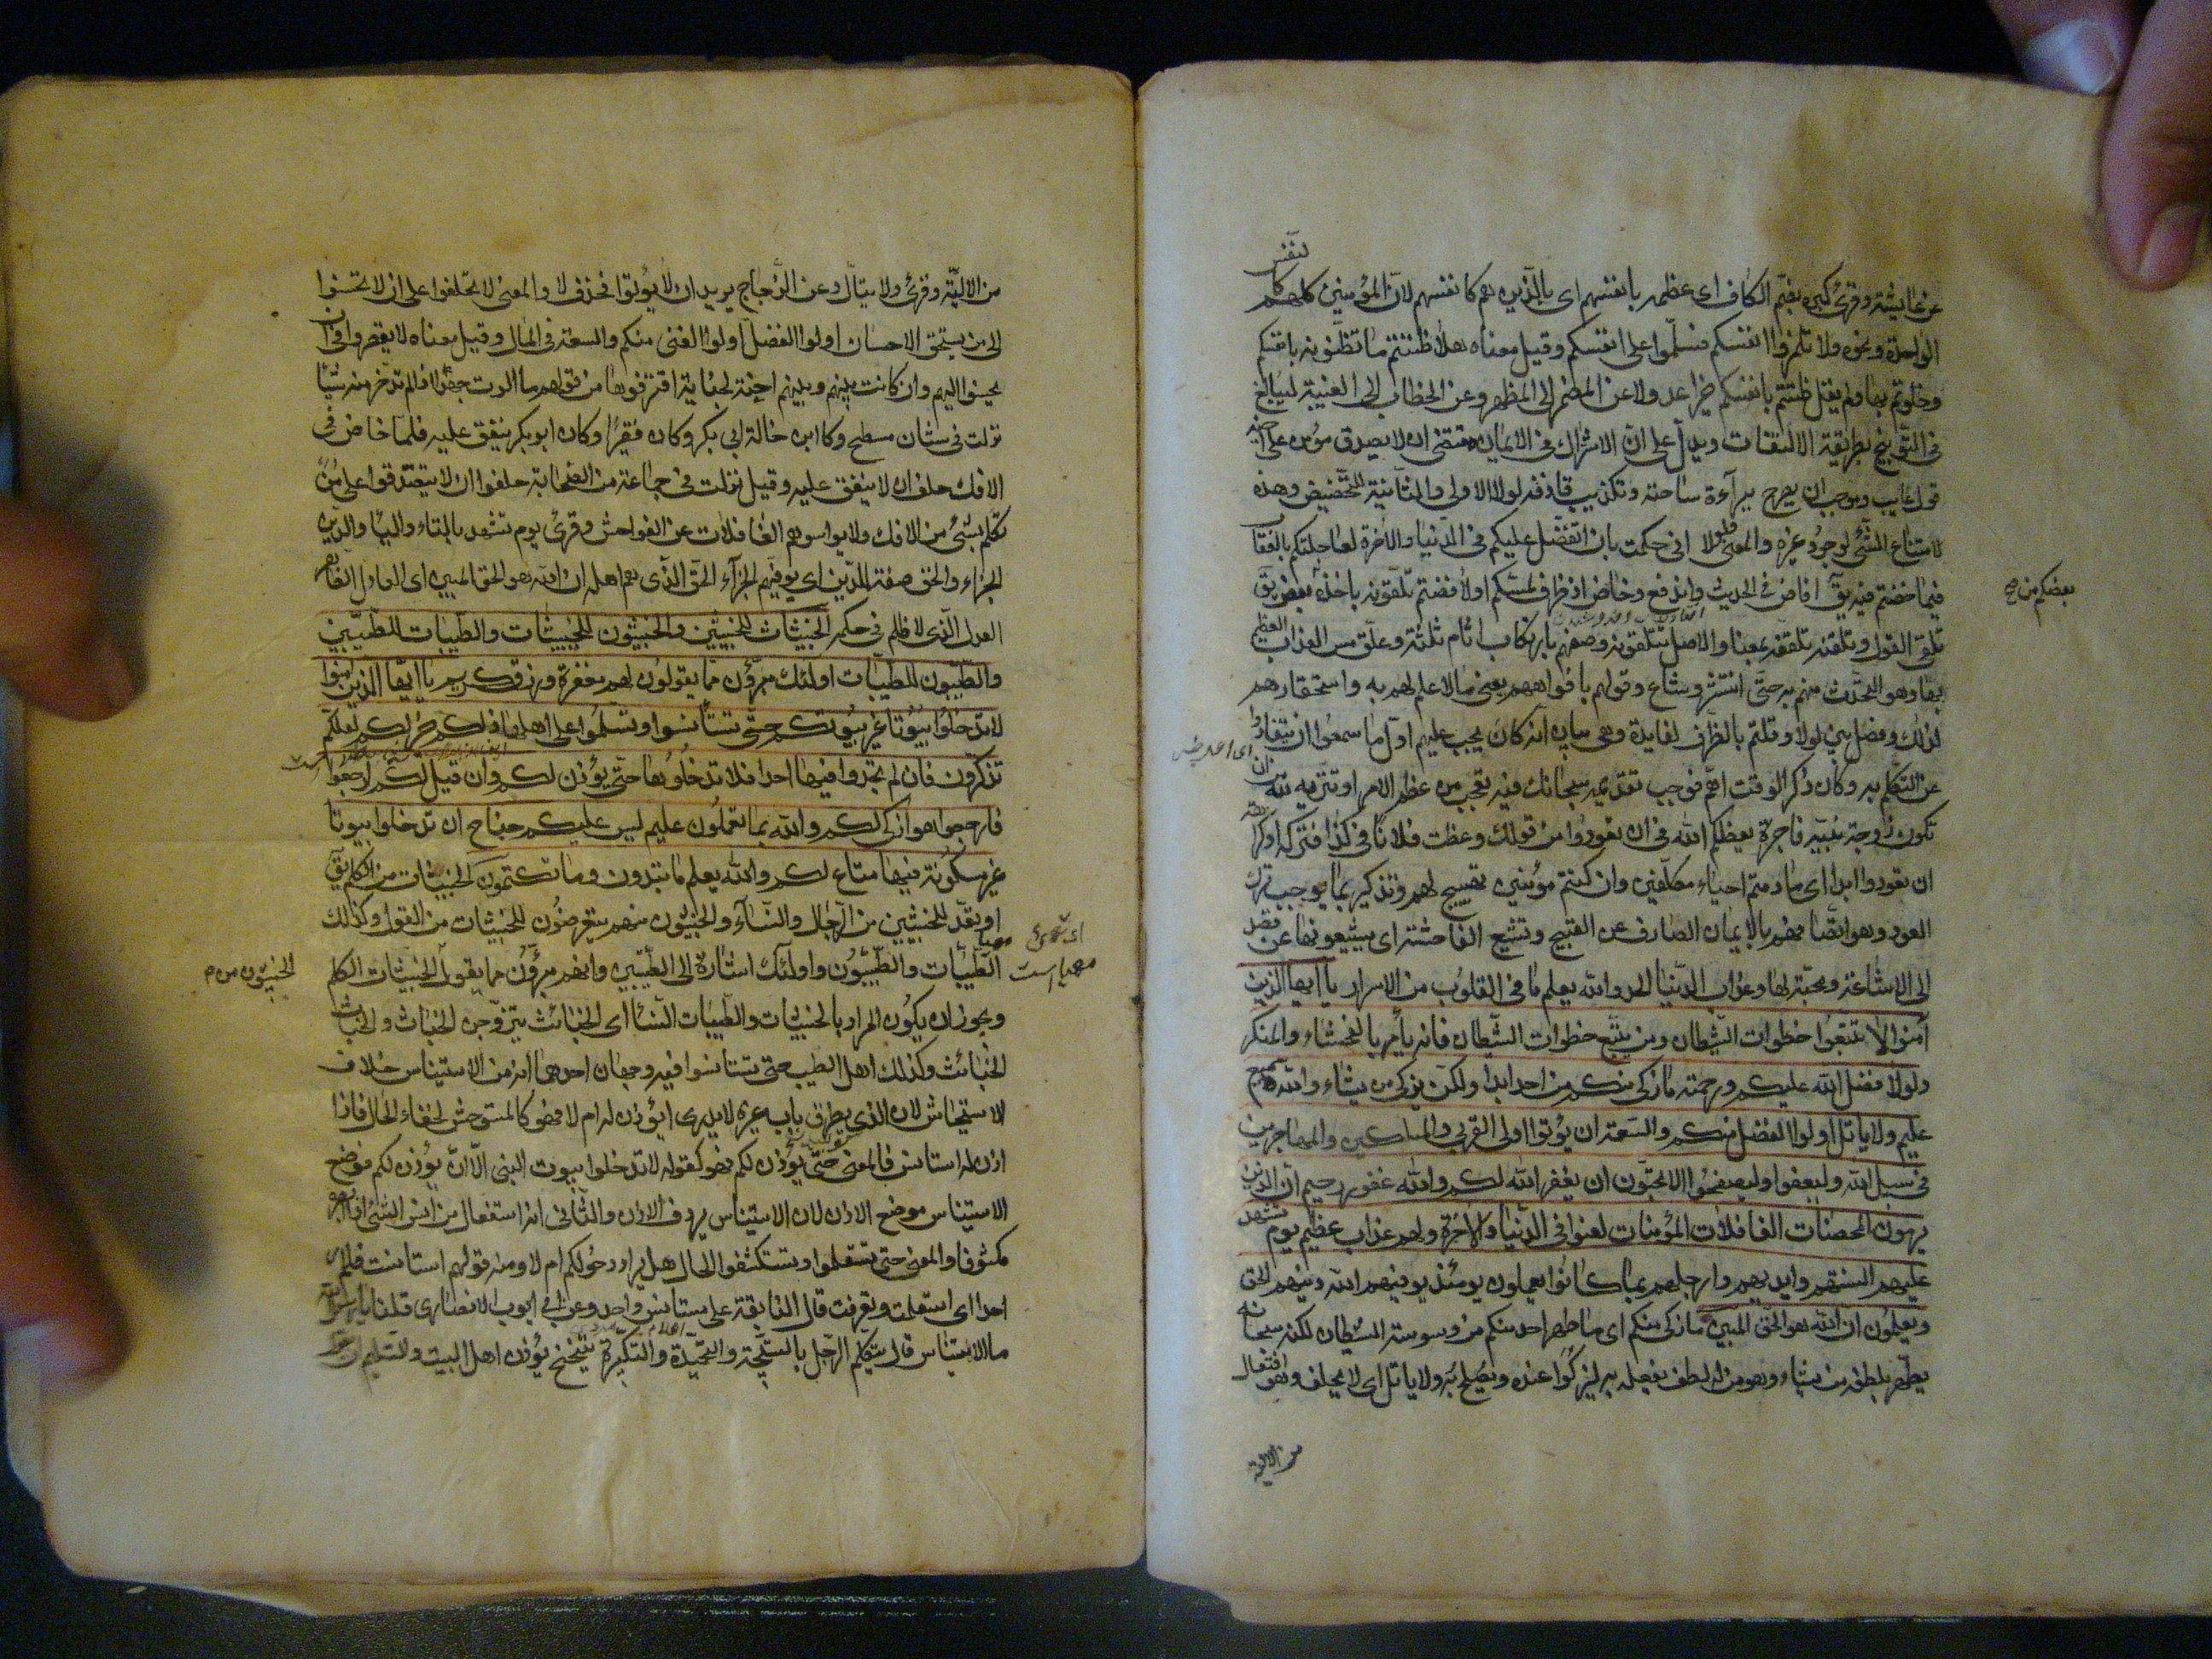 عن عايشة وقرئ كبره بضم الكاف اى عظمه بانفسهم اى بالذين هم كانفسهم لان المؤمنين كلهم كنفس
الواحدة ونحوه ولا تلمزوا انفسكم فسلموا على انفسكم وقيل معناه هلا ظننتم ما تظنونه بانفسكم
وخلوتم بها ولم يقل ظننتم بانفسكم خيرا عدولا عن المضمر الى المظهر وعن الخطاب الى الغيبة ليبالغ
فى التوبيخ بطريقة الالتفات ويدل على ان الاشتراك فى الايمان مقتضى ان لا يصدق مؤمن على اخيه
قول عايب وموجب ان يصرح ببرآءة ساحته وتكذيب قاذفه لولا الاولى والثانية للتحضيض وهذه
لامتناع الشئ لوجود غيره والمعنى ولولا انى حكمت بان اتفضل عليكم فى الدنيا والاخرة لعاجلتكم بالعقاب
فيما خضتم فيه يق افاض فى الحديث واندفع وخاض اذ ظرف لمسكم او لافضتم تلقونه ياخذه بعضكم من بعض يق
تلقى القول وتلقنه وتلقفه بمعنا والاصل تتلقونه وصفهم بارتكاب اثام ثلثة وعلق مس العذاب العظيم
بها وهو التحدث منهم به حتى انتشر وشاع وقولهم بافواههم يعنى ما لا علم لهم به واستحقارهم
لذلك وفصل بين لولا وقلتم بالظرف لفايدة وهى بيان انه كان يجب عليهم اول ما سمعوا ان يتفادوا
عن التكلم به وكان ذكر الوقت اهم فوجب تقديمه سبحانك فيه تعجب من عظم الامر او تنزيه لله ان
تكون زوجة نبيه فاجرة يعظكم الله فى ان تعودوا من قولك وعظت فلانا فى كذا فتركه او كراهة
ان تعودوا ابدا اى ما دمتم احياء مكلفين وان كنتم مؤمنين تهييج لهم وتذكير بما يوجب ترك
العود وهو اتصافهم بالايمان الصارف عن القبيح وتشيع الفاحشة اى يشيعونها عن قصد
الى الاشاعة ومحبة لها وعذاب الدنيا الحد والله يعلم ما فى القلوب من الاسرار يا ايها الذين
آمنوا لا تتبعوا خطوات الشيطان ومن يتبع خطوات الشيطان فانه يأمر بالفحشاء والمنكر
ولولا فضل الله عليكم ورحمته ما زكى منكم من احد ابدا ولكن يزكى من يشاء والله سميع
عليم ولا ياتل اولوا الفضل منكم والسعة ان يؤتوا اولى القربى والمساكين والمهاجرين
فى سبيل الله وليعفوا وليصفحوا الا تحبون ان يغفر الله لكم والله غفور رحيم ان الذين
يرمون المحصنات الغافلات المؤمنات لعنوا فى الدنيا والاخرة ولهم عذاب عظيم يوم تشهد
عليهم السنتهم وايديهم وارجلهم بما كانوا يعملون يومئذ يوفيهم الله دينهم الحق
ويعلمون ان الله هو الحق المبين ما زكى منكم اى ما طهر احد منكم من وسوسة الشيطان لكنه سبحانه
يطهر بلطفه من يشاء وهو من له لطف يفعله به ليزكوا عنده ويصلح به ولا ياتل اى لا يحلف وهو افتعال
من الالية
بعضكم من صح
من الالية وقرئ ولا يتال وعن الزجاج يريد ان لا يؤتوا فحذف لا والمعنى لا تحلفوا على ان لا تحسنوا
الى من يستحق الاحسان اولوا الفضل اولوا الغنى منكم والسعة فى المال وقيل معناه لا يقصروا فى ان
يحسنوا اليهم وان كانت بينهم وبينهم احنة لجناية اقترفوها من قولهم ما الوت جهدا اذا لم تدخر منه شيئا
نزلت فى شان مسطح وكان ابن خالة ابى بكر وكان فقيرا وكان ابو بكر ينفق عليه فلما خاض فى
الافك حلف ان لا ينفق عليه وقيل نزلت فى جماعة من الصحابة حلفوا ان لا يتصدقوا على من
تكلم بشئ من الافك ولا يواسوهم الغافلات عن الفواحش وقرئ يوم تشهد بالتاء والياء والدين
الجزاء والحق صفة الدين اى يوفيهم الجزآء الحق الذى هم اهله ان الله هو الحق المبين اى العادل الظاهر
العدل الذى لا ظلم فى حكمه الخبيثات للخبيثين والخبيثون للخبيثات والطيبات للطيبين
والطيبون للطيبات اولئك مبرؤن مما يقولون لهم مغفرة ورزق كريم يا ايها الذين امنوا
لا تدخلوا بيوتا غير بيوتكم حتى تستأنسوا وتسلموا على اهلها ذلكم خير لكم لعلكم
تذكرون فان لم تجدوا فيها احدا فلا تدخلوها حتى يؤذن لكم وان قيل لكم ارجعوا
فارجعوا هو ازكى لكم والله بما تعملون عليم ليس عليكم جناح ان تدخلوا بيوتا
غير مسكونة فيها متاع لكم والله يعلم ما تبدون وما تكتمون الخبيثات من الكلم يق
او تعد للخبيثين من الرجال والنساء والخبيثون منهم يتعرضون للخبيثات من القول وكذلك
الطيبات والطيبون واولئك اشارة الى الطيبين وانهم مبرؤن مما يقول الخبيثات الكلم
ويجوز ان يكون المراد بالخبيثات والطيبات النساء اى الخبائث يتزوجن الخباث والخباث
الخبائث وكذلك اهل الطيب حتى تستانسوا فيه وجهان احدهما انه من الاستيناس خلاف
الاستيحاش لان الذى يطرق باب غيره لا يدرى ايؤذن له ام لا فهو كالمستوحش لخفاء الحال فاذا
اذن له استانس فالمعنى حتى يؤذن لكم فهو كقوله لا تدخلوا بيوت النبى الا ان يؤذن لكم فوضع
الاستيناس موضع الاذن لان الاستيناس يردف الاذن والثانى انه استفعال من انس الشئ اذا ابصره
مكشوفا والمعنى حتى تستعلموا وتستكشفوا الحال هل يراد دخولكم ام لا ومنه قولهم استانست فلم ار
احدا اى استعلمت وتعرفت قال النابغة على مستانس واحد وعن ابى ايوب الانصارى قلنا يا رسول الله
ما الاستيناس قال يتكلم الرجل بالتسبيحة والتحميدة والتكبيرة يتنحنح يؤذن اهل البيت والتسليم ان
الخبيثون من م
مهيا است